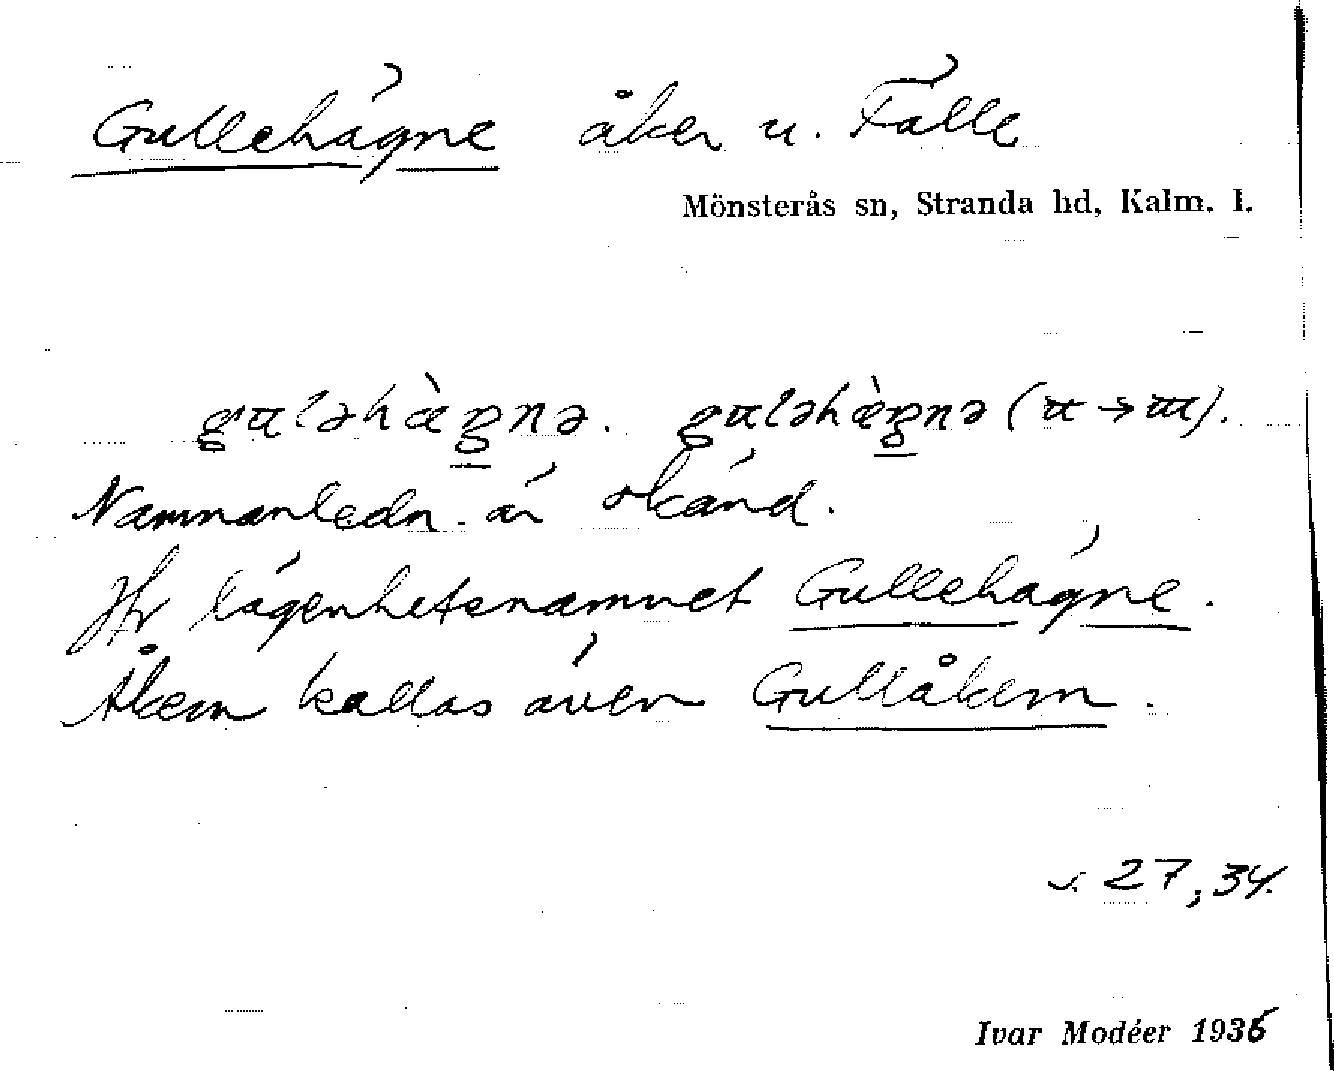 Gullehägne åker u. Fälle
Mönsterås sn, Stranda hd, Kalm. l.
guləhæ̀gnə. guləhæ̀gnə (u → ɯ).
Namnanledn. är okänd.
Jfr lägenhetsnamnet Gullehägne.
Åkern kallas även Gullåkern.
s. 27, 34.
Ivar Modéer 1936